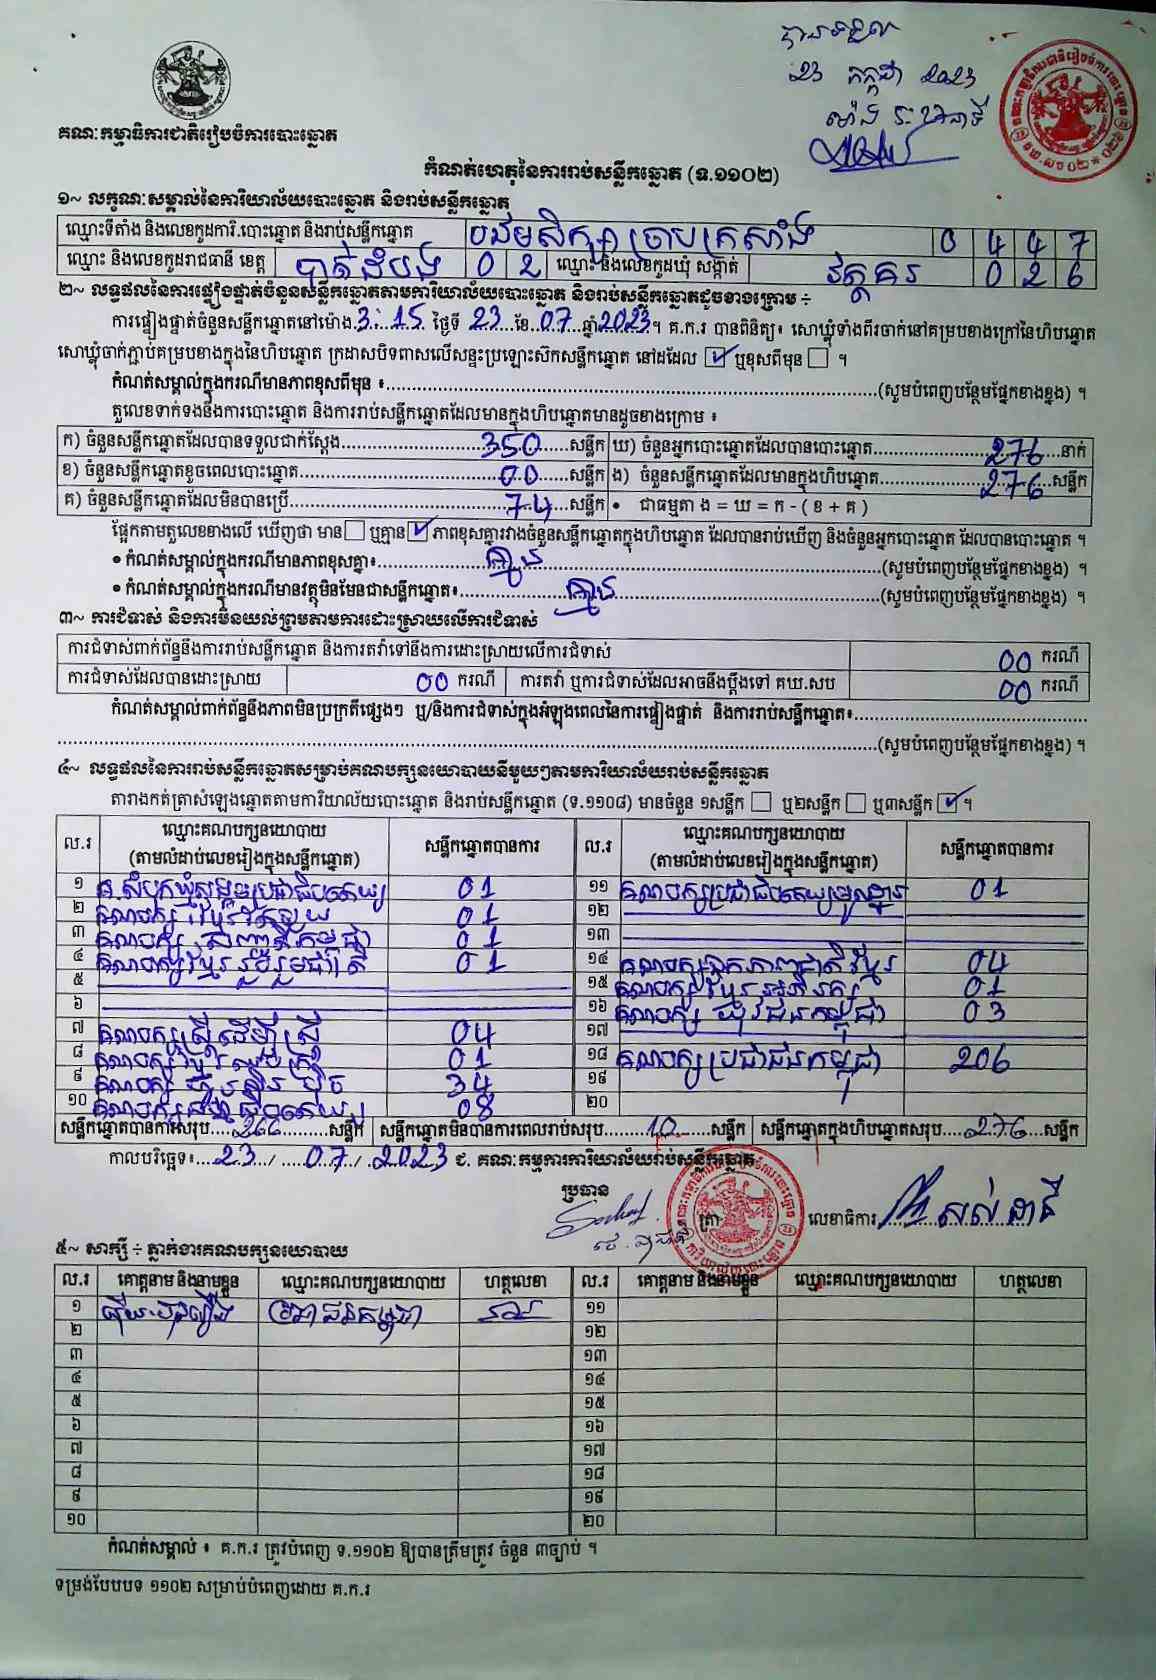 បានទទួល
23 កក្កដា 2023
គណៈកម្មាធិការជាតិរៀបចំការបោះឆ្នោត
កំណត់ហេតុនៃការរាប់សន្លឹកឆ្នោត (ទ.១១០២)
១~ លក្ខណៈសម្គាល់នៃការិយាល័យបោះឆ្នោត និងរាប់សន្លឹកឆ្នោត
ឈ្មោះទីតាំង និងលេខកូដការិ.បោះឆ្នោត និងរាប់សន្លឹកឆ្នោត បឋមសិក្សា ច្រាបក្រសាំង 0 4 4 7
ឈ្មោះ និងលេខកូដរាជធានី ខេត្ត បាត់ដំបង 0 2 ឈ្មោះ និងលេខកូដឃុំ សង្កាត់ វត្តគរ 0 2 6
២~ លទ្ធផលនៃការផ្ទៀងផ្ទាត់ចំនួនសន្លឹកឆ្នោតតាមការិយាល័យបោះឆ្នោត និងរាប់សន្លឹកឆ្នោតដូចខាងក្រោម ÷
ការផ្ទៀងផ្ទាត់ចំនួនសន្លឹកឆ្នោតនៅម៉ោង 3:15 ថ្ងៃទី 23 ខែ 07 ឆ្នាំ 2023 ។ គ.ក.រ បានពិនិត្យ៖ សោឃ្លុំទាំងពីរចាក់នៅគម្របខាងក្រៅនៃហិបឆ្នោត
សោឃ្លុំចាក់ភ្ជាប់គម្របខាងក្នុងនៃហិបឆ្នោត ក្រដាសបិទពាសលើសន្ទះប្រឡោះស៊កសន្លឹកឆ្នោត នៅដដែល ☑ ឬខុសពីមុន ☐ ។
កំណត់សម្គាល់ក្នុងករណីមានភាពខុសពីមុន ៖ (សូមបំពេញបន្ថែមផ្នែកខាងខ្នង) ។
តួលេខទាក់ទងនឹងការបោះឆ្នោត និងការរាប់សន្លឹកឆ្នោតដែលមានក្នុងហិបឆ្នោតមានដូចខាងក្រោម ៖
ក) ចំនួនសន្លឹកឆ្នោតដែលបានទទួលជាក់ស្តែង 350 សន្លឹក ឃ) ចំនួនអ្នកបោះឆ្នោតដែលបានបោះឆ្នោត 276 នាក់
ខ) ចំនួនសន្លឹកឆ្នោតខូចពេលបោះឆ្នោត 00 សន្លឹក ង) ចំនួនសន្លឹកឆ្នោតដែលមានក្នុងហិបឆ្នោត 276 សន្លឹក
គ) ចំនួនសន្លឹកឆ្នោតដែលមិនបានប្រើ 74 សន្លឹក • ជាធម្មតា ង = ឃ = ក - ( ខ + គ )
ផ្អែកតាមតួលេខខាងលើ ឃើញថា មាន ☐ ឬគ្មាន ☑ ភាពខុសគ្នារវាងចំនួនសន្លឹកឆ្នោតក្នុងហិបឆ្នោត ដែលបានរាប់ឃើញ និងចំនួនអ្នកបោះឆ្នោត ដែលបានបោះឆ្នោត ។
• កំណត់សម្គាល់ក្នុងករណីមានភាពខុសគ្នា៖ គ្មាន (សូមបំពេញបន្ថែមផ្នែកខាងខ្នង) ។
• កំណត់សម្គាល់ក្នុងករណីមានវត្ថុមិនមែនជាសន្លឹកឆ្នោត៖ គ្មាន (សូមបំពេញបន្ថែមផ្នែកខាងខ្នង) ។
៣~ ការជំទាស់ និងការមិនយល់ព្រមតាមការដោះស្រាយលើការជំទាស់
ការជំទាស់ពាក់ព័ន្ធនឹងការរាប់សន្លឹកឆ្នោត និងការតវ៉ាទៅនឹងការដោះស្រាយលើការជំទាស់ 00 ករណី
ការជំទាស់ដែលបានដោះស្រាយ 00 ករណី ការតវ៉ា ឬការជំទាស់ដែលអាចនឹងប្តឹងទៅ គឃ.សប 00 ករណី
កំណត់សម្គាល់ពាក់ព័ន្ធនឹងភាពមិនប្រក្រតីផ្សេងៗ ឬ/និងការជំទាស់ក្នុងអំឡុងពេលនៃការផ្ទៀងផ្ទាត់ និងការរាប់សន្លឹកឆ្នោត៖
(សូមបំពេញបន្ថែមផ្នែកខាងខ្នង) ។
៤~ លទ្ធផលនៃការរាប់សន្លឹកឆ្នោតសម្រាប់គណបក្សនយោបាយនីមួយៗតាមការិយាល័យរាប់សន្លឹកឆ្នោត
តារាងកត់ត្រាសំឡេងឆ្នោតតាមការិយាល័យបោះឆ្នោត និងរាប់សន្លឹកឆ្នោត (ទ.១១០៨) មានចំនួន ១សន្លឹក ☐ ឬ២សន្លឹក ☐ ឬ៣សន្លឹក ☑ ។
ល.រ ឈ្មោះគណបក្សនយោបាយ (តាមលំដាប់លេខរៀងក្នុងសន្លឹកឆ្នោត) សន្លឹកឆ្នោតបានការ ល.រ ឈ្មោះគណបក្សនយោបាយ (តាមលំដាប់លេខរៀងក្នុងសន្លឹកឆ្នោត) សន្លឹកឆ្នោតបានការ
១ គ.សំបុកឃ្មុំសង្គមប្រជាធិបតេយ្យ 01 ១១ គណបក្សប្រជាធិបតេយ្យមូលដ្ឋាន 01
២ គណបក្ស ខ្មែរ 01 ១២
៣ គណបក្ស សញ្ជាតិកម្ពុជា 01 ១៣
៤ គណបក្សខ្មែររួបរួមជាតិ 01 ១៤ គណបក្សឯកភាពជាតិខ្មែរ 04
៥ ១៥ គណបក្សខ្មែរអភិរក្ស 01
៦ ១៦ គណបក្ស យុវជនកម្ពុជា 03
៧ គណបក្សស្ត្រីដើម្បីស្ត្រី 04 ១៧
៨ គណបក្ស 01 ១៨ គណបក្សប្រជាជនកម្ពុជា 206
៩ គណបក្ស ហ៊្វុនស៊ិនប៉ិច 34 ១៩
១០ គណបក្ស 08 ២០
សន្លឹកឆ្នោតបានការសរុប 266 សន្លឹក សន្លឹកឆ្នោតមិនបានការពេលរាប់សរុប 10 សន្លឹក សន្លឹកឆ្នោតក្នុងហិបឆ្នោតសរុប 276 សន្លឹក
កាលបរិច្ឆេទ៖ 23 / 07 / 2023 ជ. គណៈកម្មការការិយាល័យរាប់សន្លឹកឆ្នោត
ប្រធាន
ត្រា
លេខាធិការ
៥~ សាក្សី ÷ ភ្នាក់ងារគណបក្សនយោបាយ
ល.រ គោត្តនាម និងនាមខ្លួន ឈ្មោះគណបក្សនយោបាយ ហត្ថលេខា ល.រ គោត្តនាម និងនាមខ្លួន ឈ្មោះគណបក្សនយោបាយ ហត្ថលេខា
១ ប្រជាជនកម្ពុជា ១១
២ ១២
៣ ១៣
៤ ១៤
៥ ១៥
៦ ១៦
៧ ១៧
៨ ១៨
៩ ១៩
១០ ២០
កំណត់សម្គាល់ ៖ គ.ក.រ ត្រូវបំពេញ ទ.១១០២ ឱ្យបានត្រឹមត្រូវ ចំនួន ៣ច្បាប់ ។
ទម្រង់បែបបទ ១១០២ សម្រាប់បំពេញដោយ គ.ក.រ